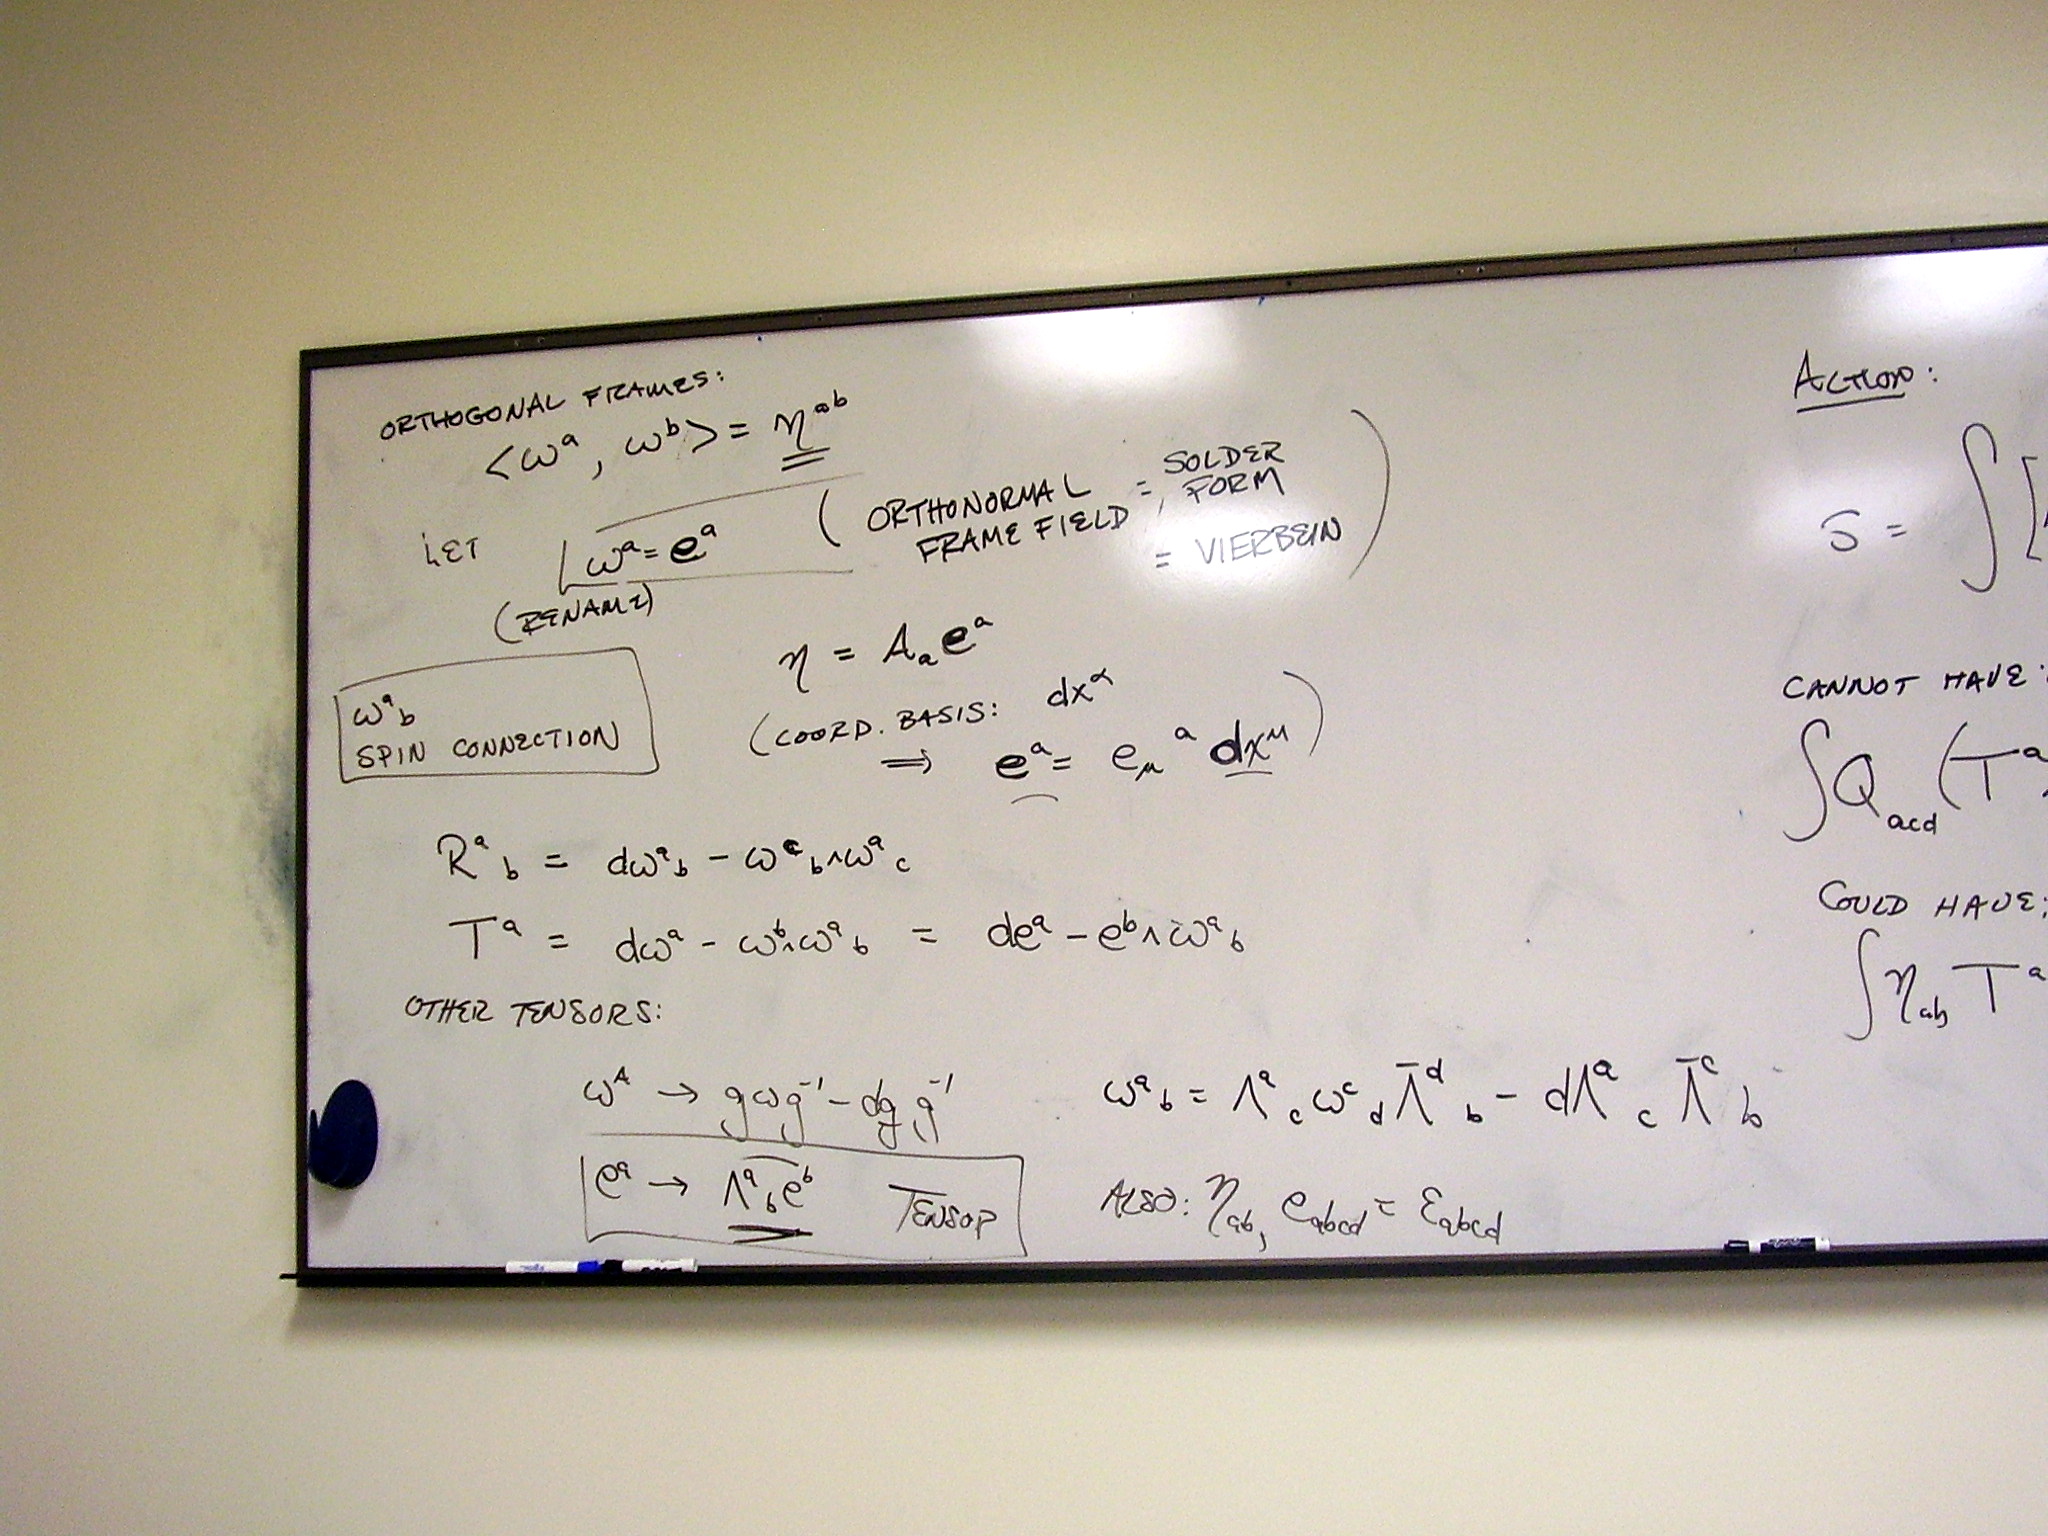 ORTHOGONAL FRAMES:
<ωᵃ, ωᵇ> = ηᵃᵇ
LET ωᵃ = eᵃ
(RENAME)
( ORTHONORMAL FRAME FIELD = SOLDER FORM
= VIERBEIN )
η = Aₐeᵃ
(COORD. BASIS: dx^α
⇒ eᵃ = e_μ ᵃ dx^μ )
ωᵃ_b
SPIN CONNECTION
Rᵃ_b = dωᵃ_b - ωᶜ_b ∧ ωᵃ_c
Tᵃ = dωᵃ - ωᵇ ∧ ωᵃ_b = deᵃ - eᵇ ∧ ωᵃ_b
OTHER TENSORS:
ω^A → gωg⁻¹ - dg g⁻¹
ωᵃ_b = Λᵃ_c ωᶜ_d Λ̄ᵈ_b - dΛᵃ_c Λ̄ᶜ_b
eᵃ → Λᵃ_b eᵇ TENSOR
ALSO: η_ab, e_abcd = ε_abcd
ACTION:
S = ∫ [
CANNOT HAVE:
∫ Q_acd (Tᵃ
COULD HAVE:
∫ η_ab Tᵃ